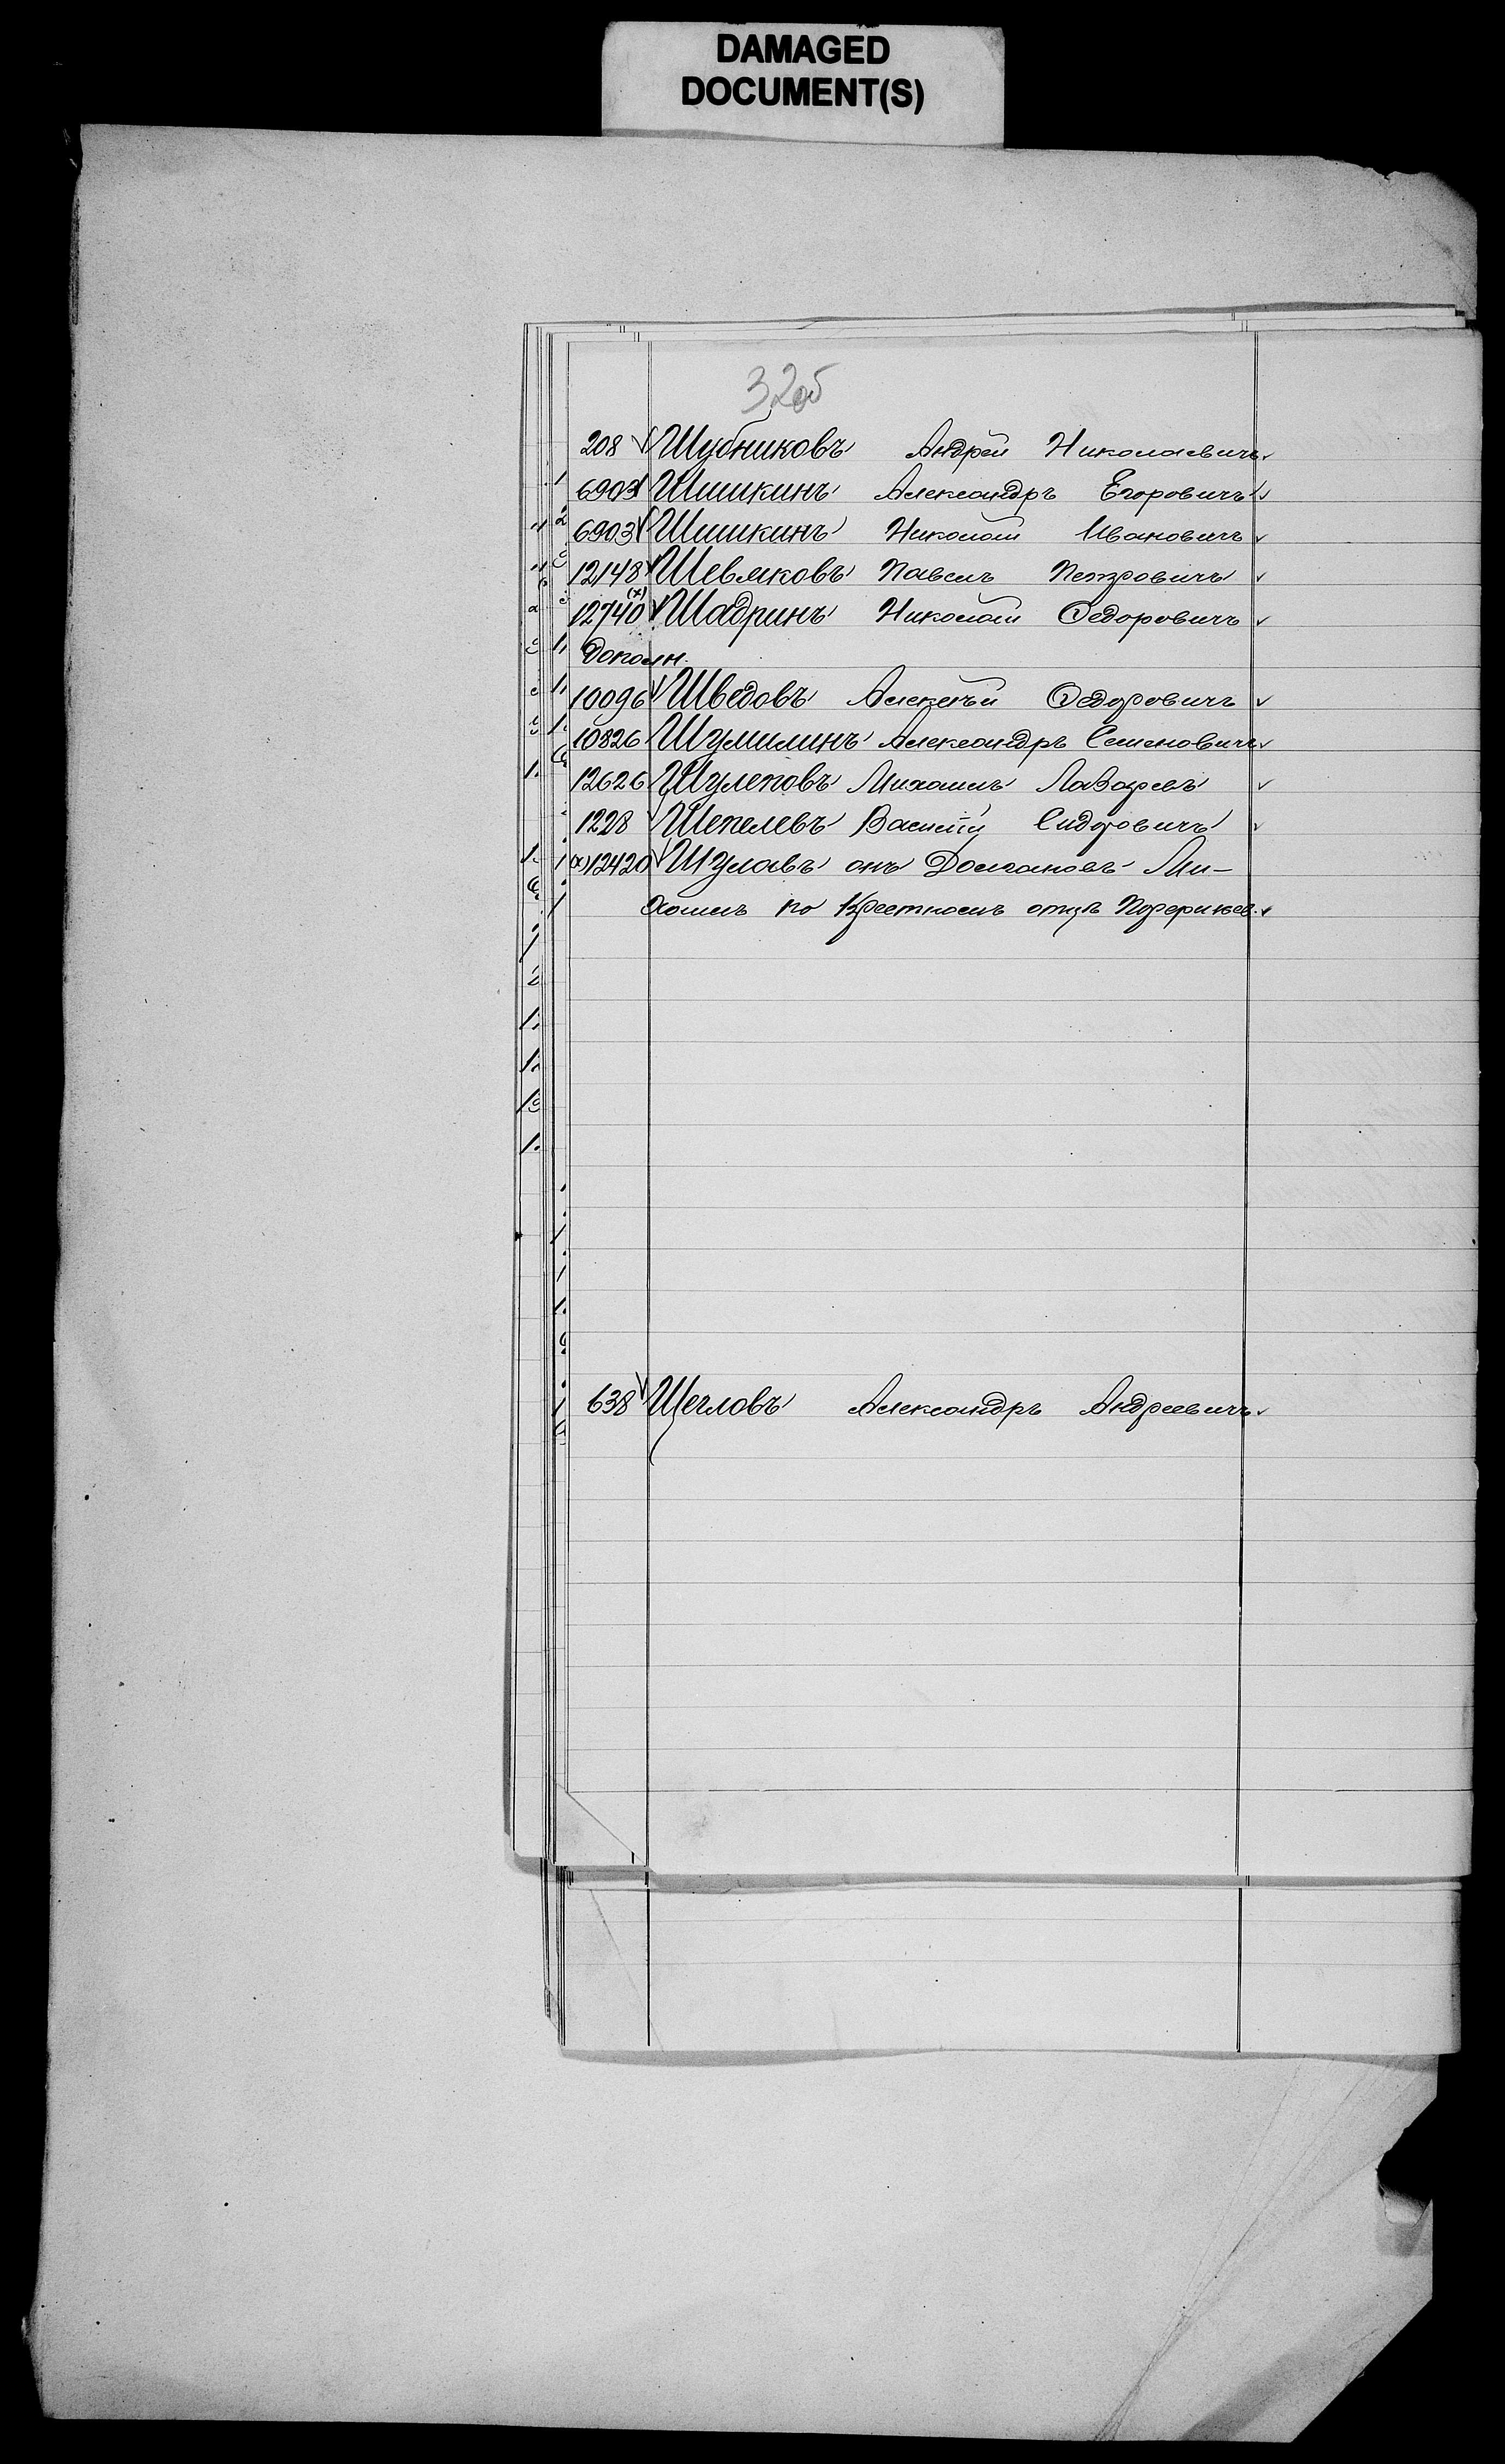 DAMAGED
DOCUMENT(S)
32об
208 Шубниковъ Андрей Николаевичъ
6903 Шишкинъ Александръ Егоровичъ
6903 Шишкинъ Николай Ивановичъ
12148 Шевляковъ Павелъ Петровичъ
12740 (х) Шадринъ Николай Ѳедоровичъ
Дополн.
10096 Шведовъ Алексѣй Ѳедоровичъ
10826 Шумилинъ Александръ Семеновичъ
12626 Шулеповъ Михаилъ Лазаревъ
1228 Шепелевъ Василій Сидоровичъ
(х) 12420 Шулавъ онъ Долгановъ Ми-
хаилъ по Крестномъ отцѣ
638 Щегловъ Александръ Андреевичъ